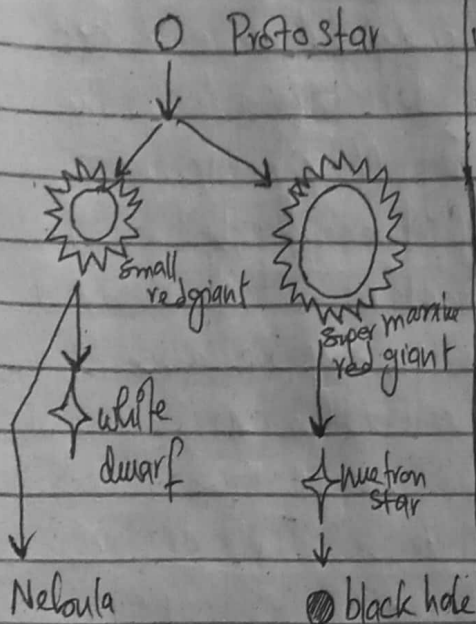 Protostar
small
red giant
super massive
red giant
white
dwarf
nuetron
star
Nebula
black hole